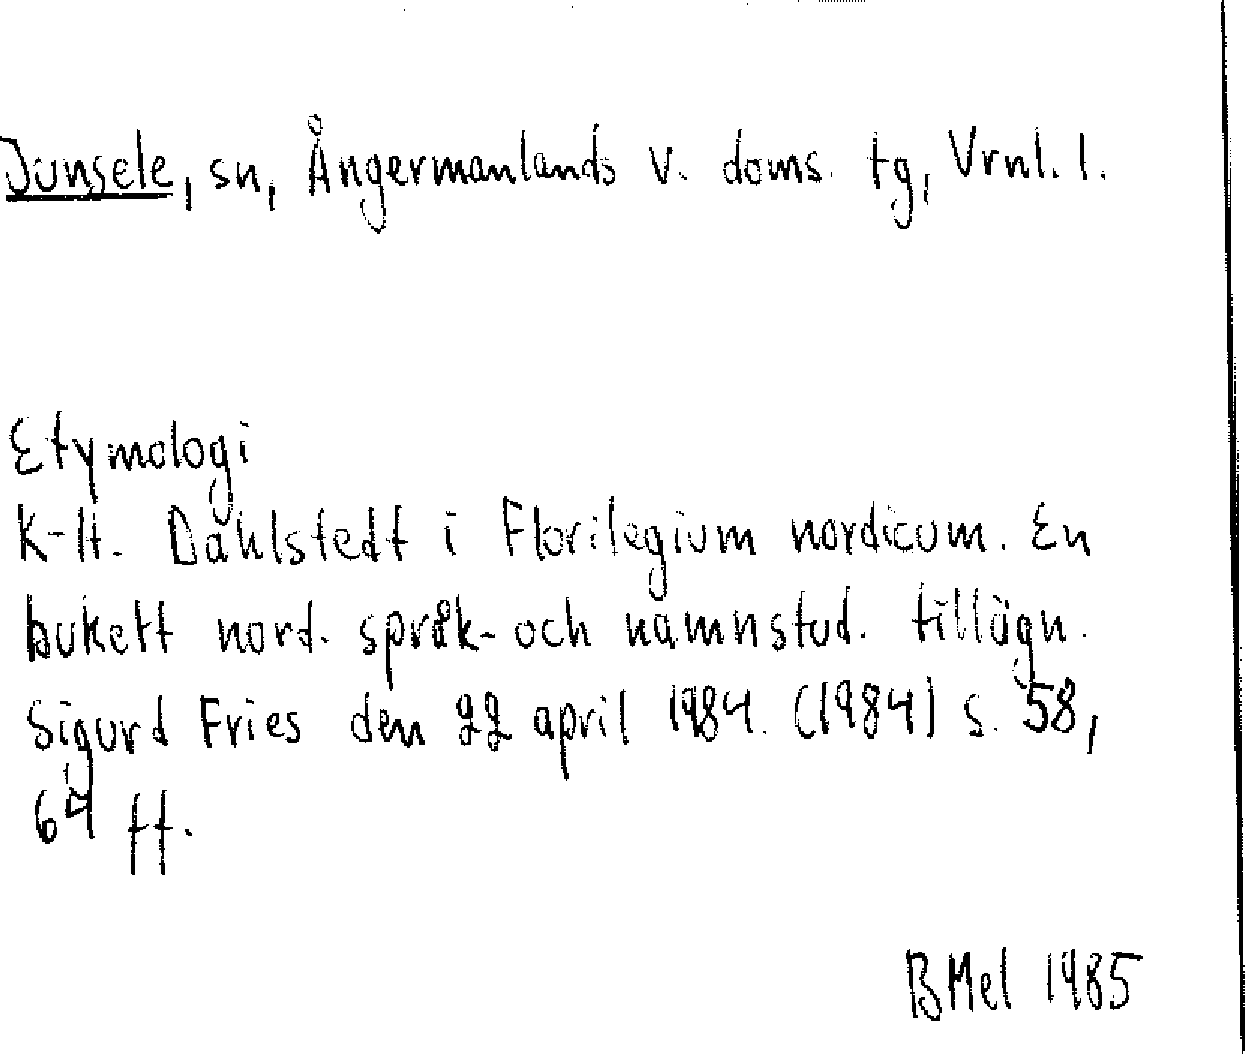 Junsele, sn, Ångermanlands v. doms. tg, Vrnl. l.
Etymologi
K-H. Dahlstedt i Florilegium nordicum. En
bukett nord. språk- och namnstud. tillägn.
Sigurd Fries den 22 april 1984. (1984) s. 58,
64 ff.
BMel 1985